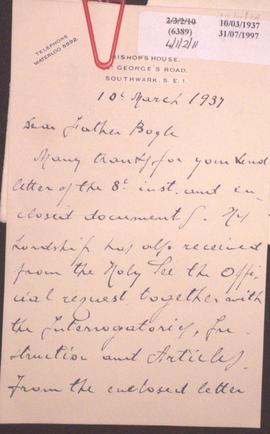 2/3/2/10
(6389)
4/1/2/11
10/03/1937
31/07/1997
TELEPHONE
WATERLOO 5592.
BISHOP'S HOUSE,
ST GEORGE'S ROAD,
SOUTHWARK, S. E. 1.
10th March 1937
Dear Father Bogle
Many thanks for your kind
letter of the 8th inst. and en-
closed documents. His
Lordship has also received
from the Holy See the Offi-
cial request together with
the Interrogatories, In-
struction and Articles.
From the enclosed letter